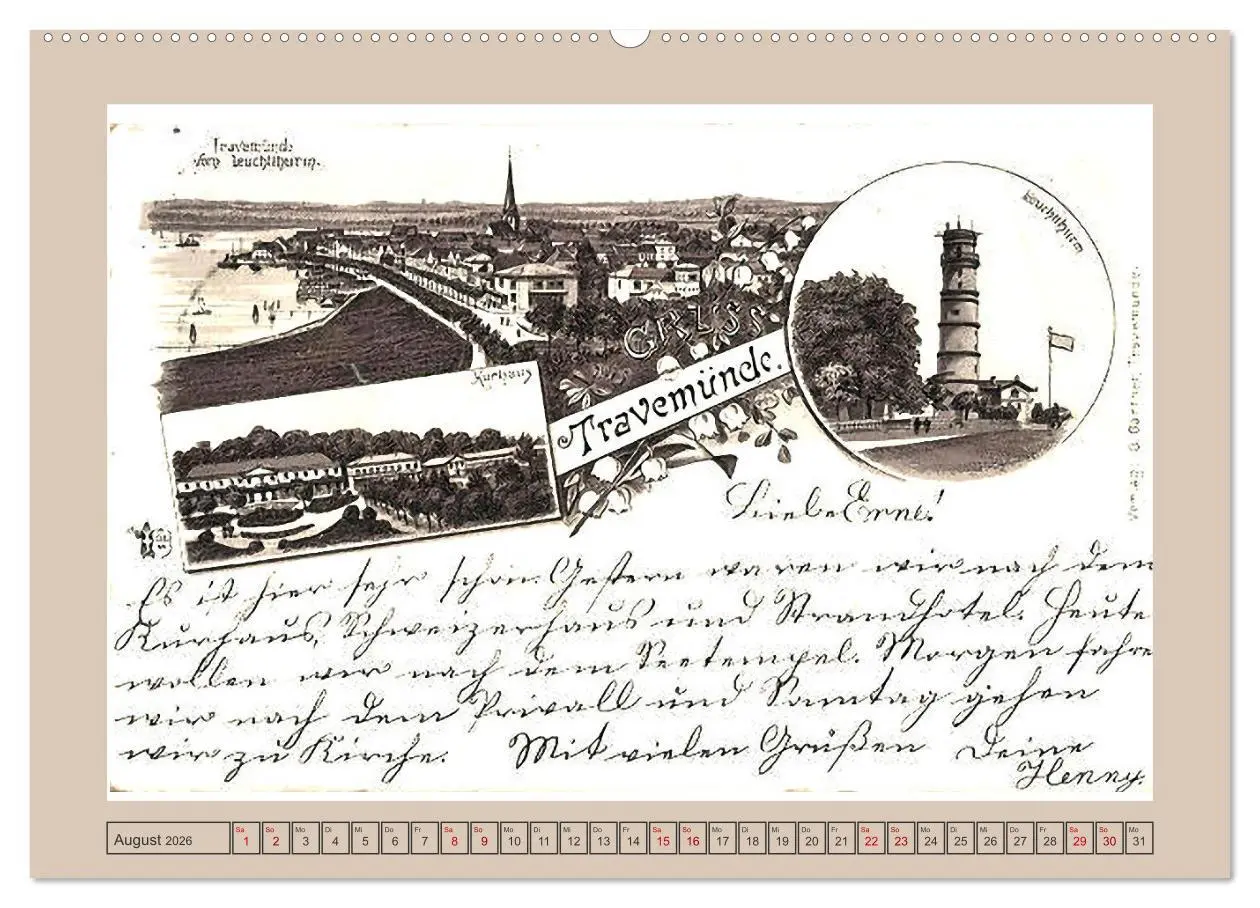 Travemünde
vom Leuchtthurm.
Leuchtthurm
GRUSS
Kurhaus
Travemünde.
Liebe Erne!
Es ist hier sehr schön. Gestern waren wir nach dem
Kurhaus, Schweizerhaus und Strandhotel. Heute
wollen wir nach dem Seetempel. Morgen fahre
wir nach dem Privall und Sonntag gehen
wir zu Kirche. Mit vielen Grüßen Deine
Henny.
August 2026
Sa 1 So 2 Mo 3 Di 4 Mi 5 Do 6 Fr 7 Sa 8 So 9 Mo 10 Di 11 Mi 12 Do 13 Fr 14 Sa 15 So 16 Mo 17 Di 18 Mi 19 Do 20 Fr 21 Sa 22 So 23 Mo 24 Di 25 Mi 26 Do 27 Fr 28 Sa 29 So 30 Mo 31